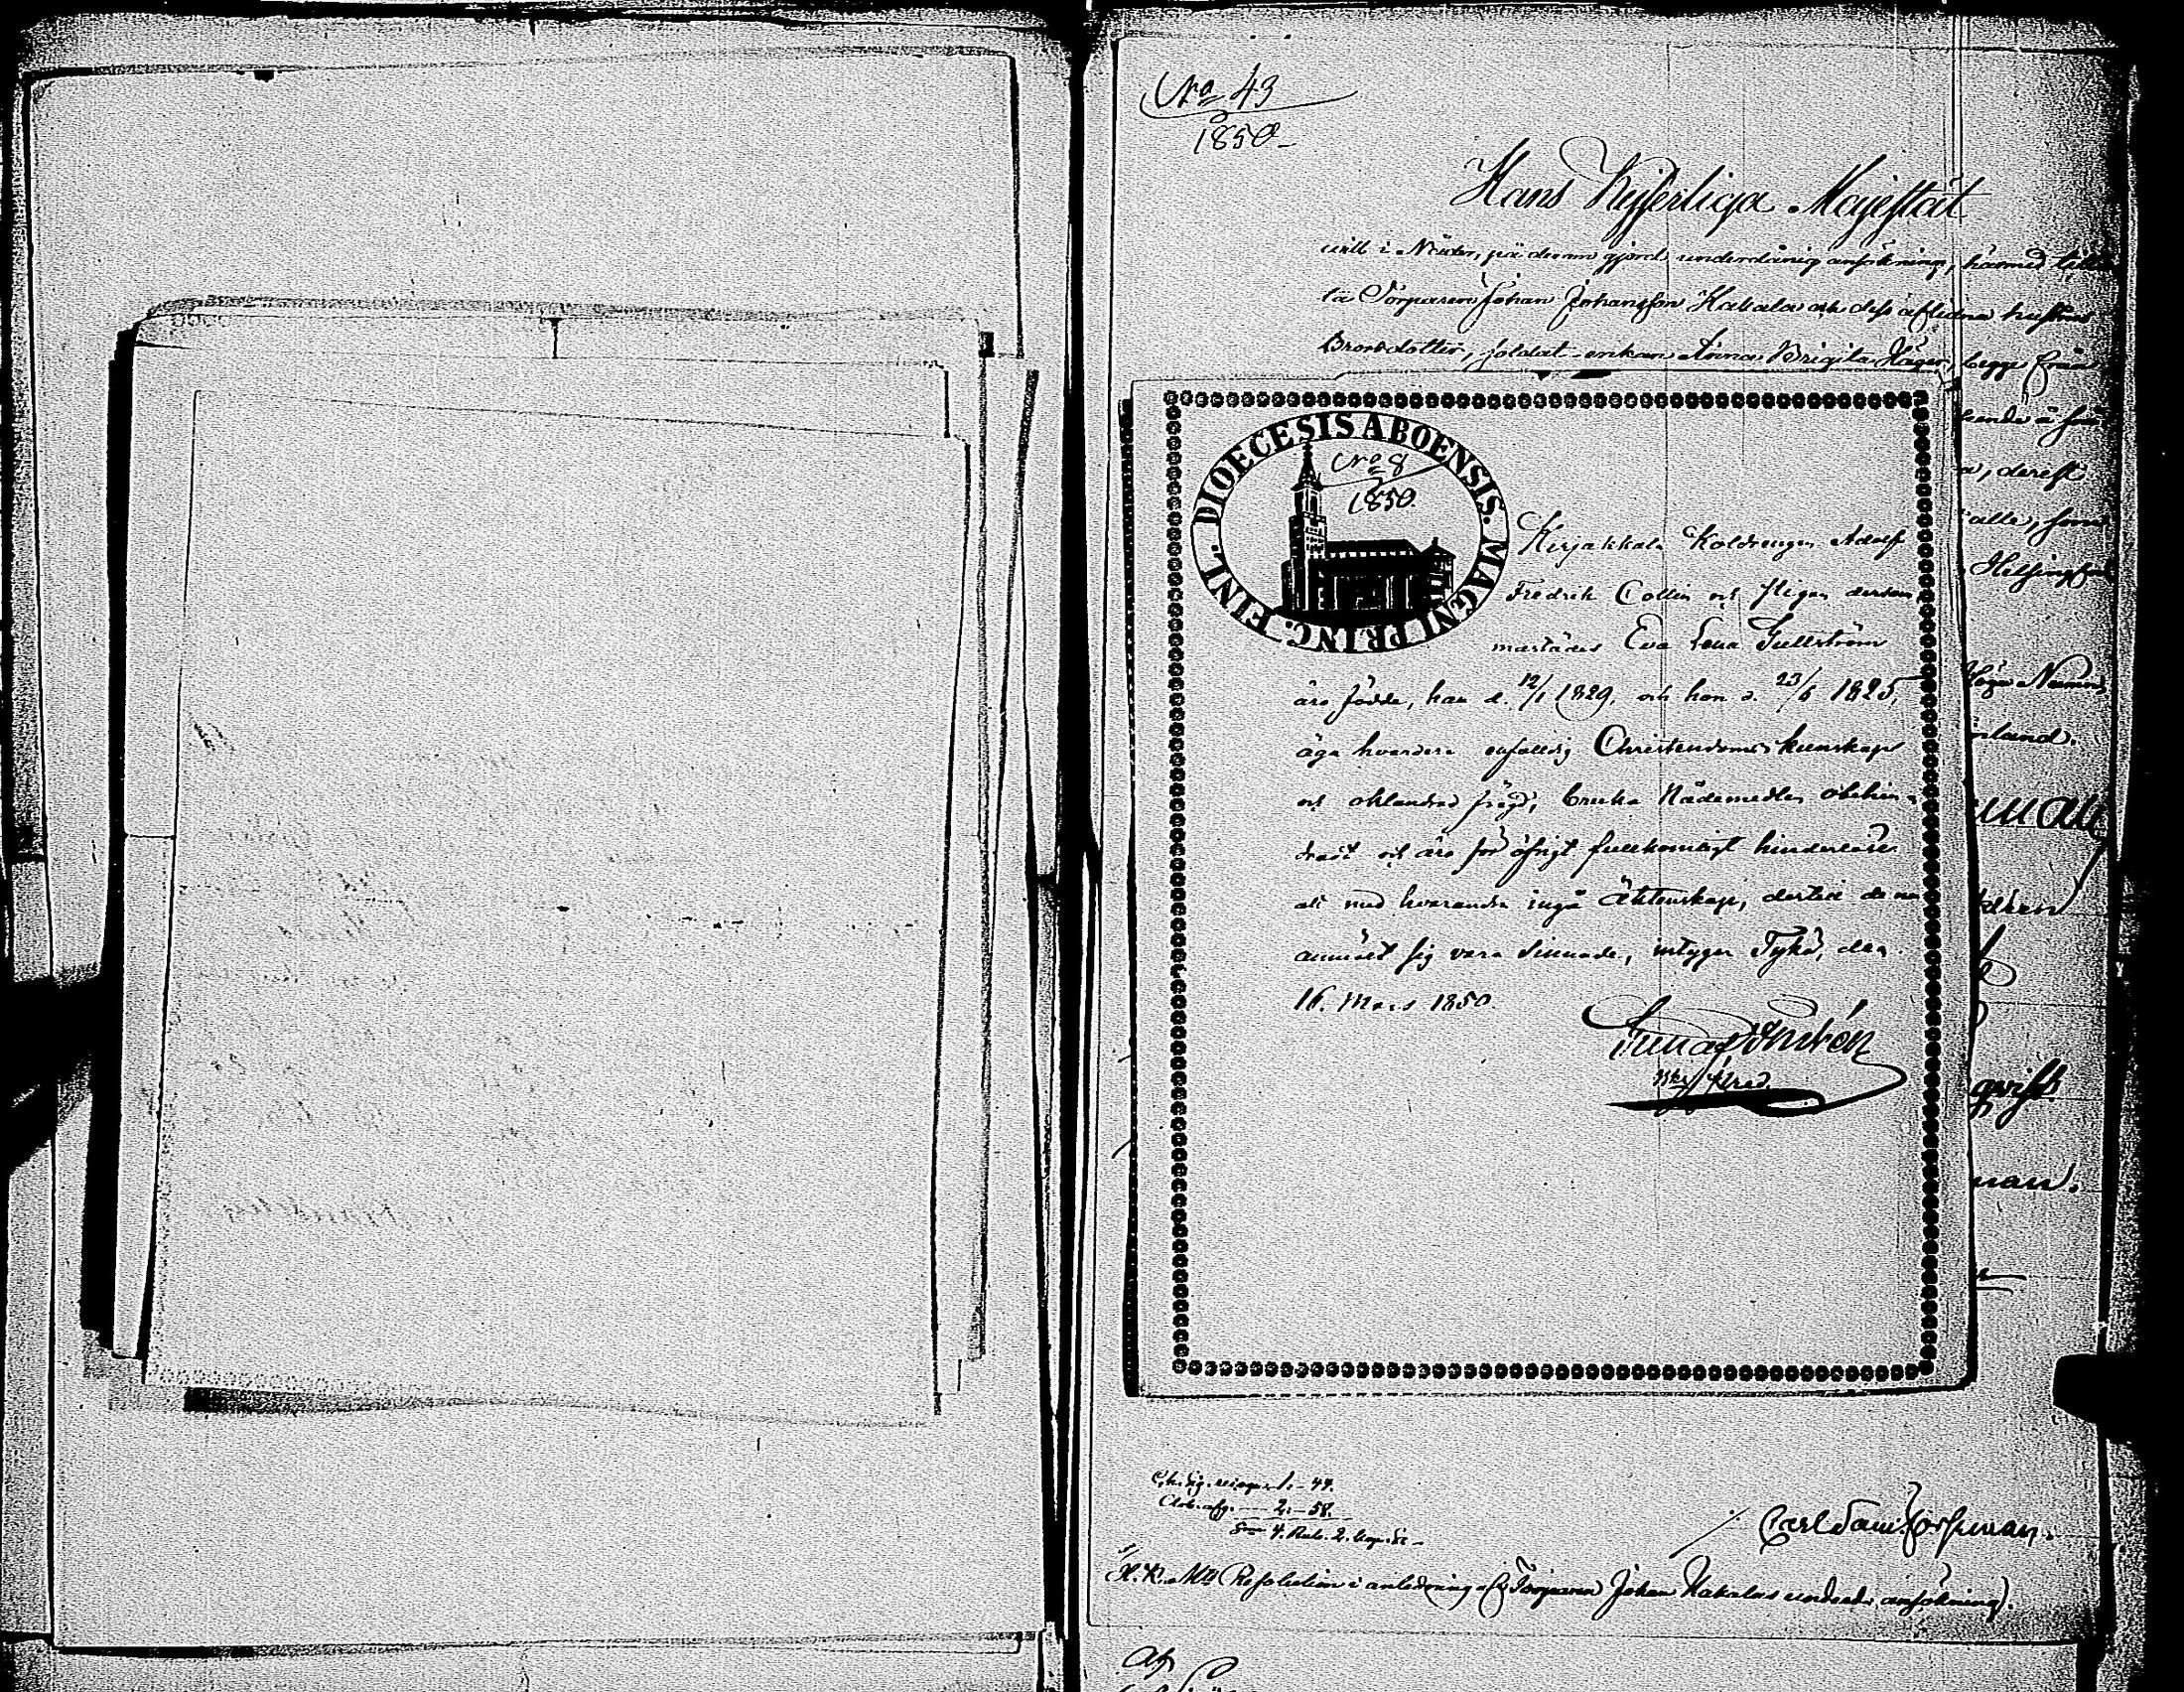 Nro 43
1850
Hans Kejserliga Majestät
will i Nåder, på derom gjord underdånig ansökning, härmed tillå
ta Torparen Johan Johansson Hakala och dess aflidna hustrus
Brorsdotter, soldat-enkan Anna Brigita Häger, begge från
DIOECESIS ABOENSIS. MAGNI PRINC. FINL.
Nro 8
1850.
Kirjakkala Koldrengen Adolf
Fredrik Collin och Pigan dersam
mastädes Eva Lena Gullström
äro födde, han d. 12/1 1829, och hon d. 23/6 1825,
äga hvardera enfaldig Christendoms kunskap
och oklandrad frägd, bruka Nådemedlen obehin-
dradt och äro för öfrigt fullkomligt hinderlöse
att med hvarandra ingå äktenskap, dertill de nu
anmält sig vara sinnade, intygar Tykö, den
16. Mars 1850.
derest
alle, som
Helsingfors
Höga Namn,
dren
qvist
man.
1,-44.
2,-58.
4. Rub. 2. kop.
Carl
H. K. Mts Resolution i anledning af Torparen Johan Hakalas underd. ansökning.